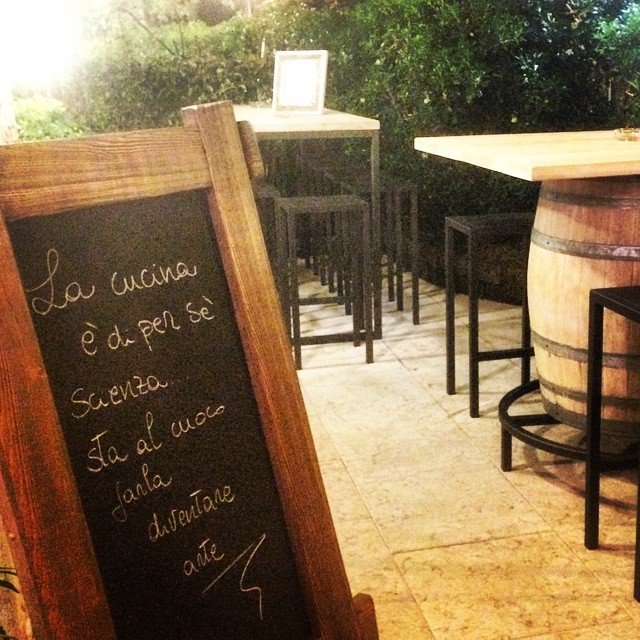 La cucina
è di per sè
scienza...
sta al cuoco
farla
diventare
arte